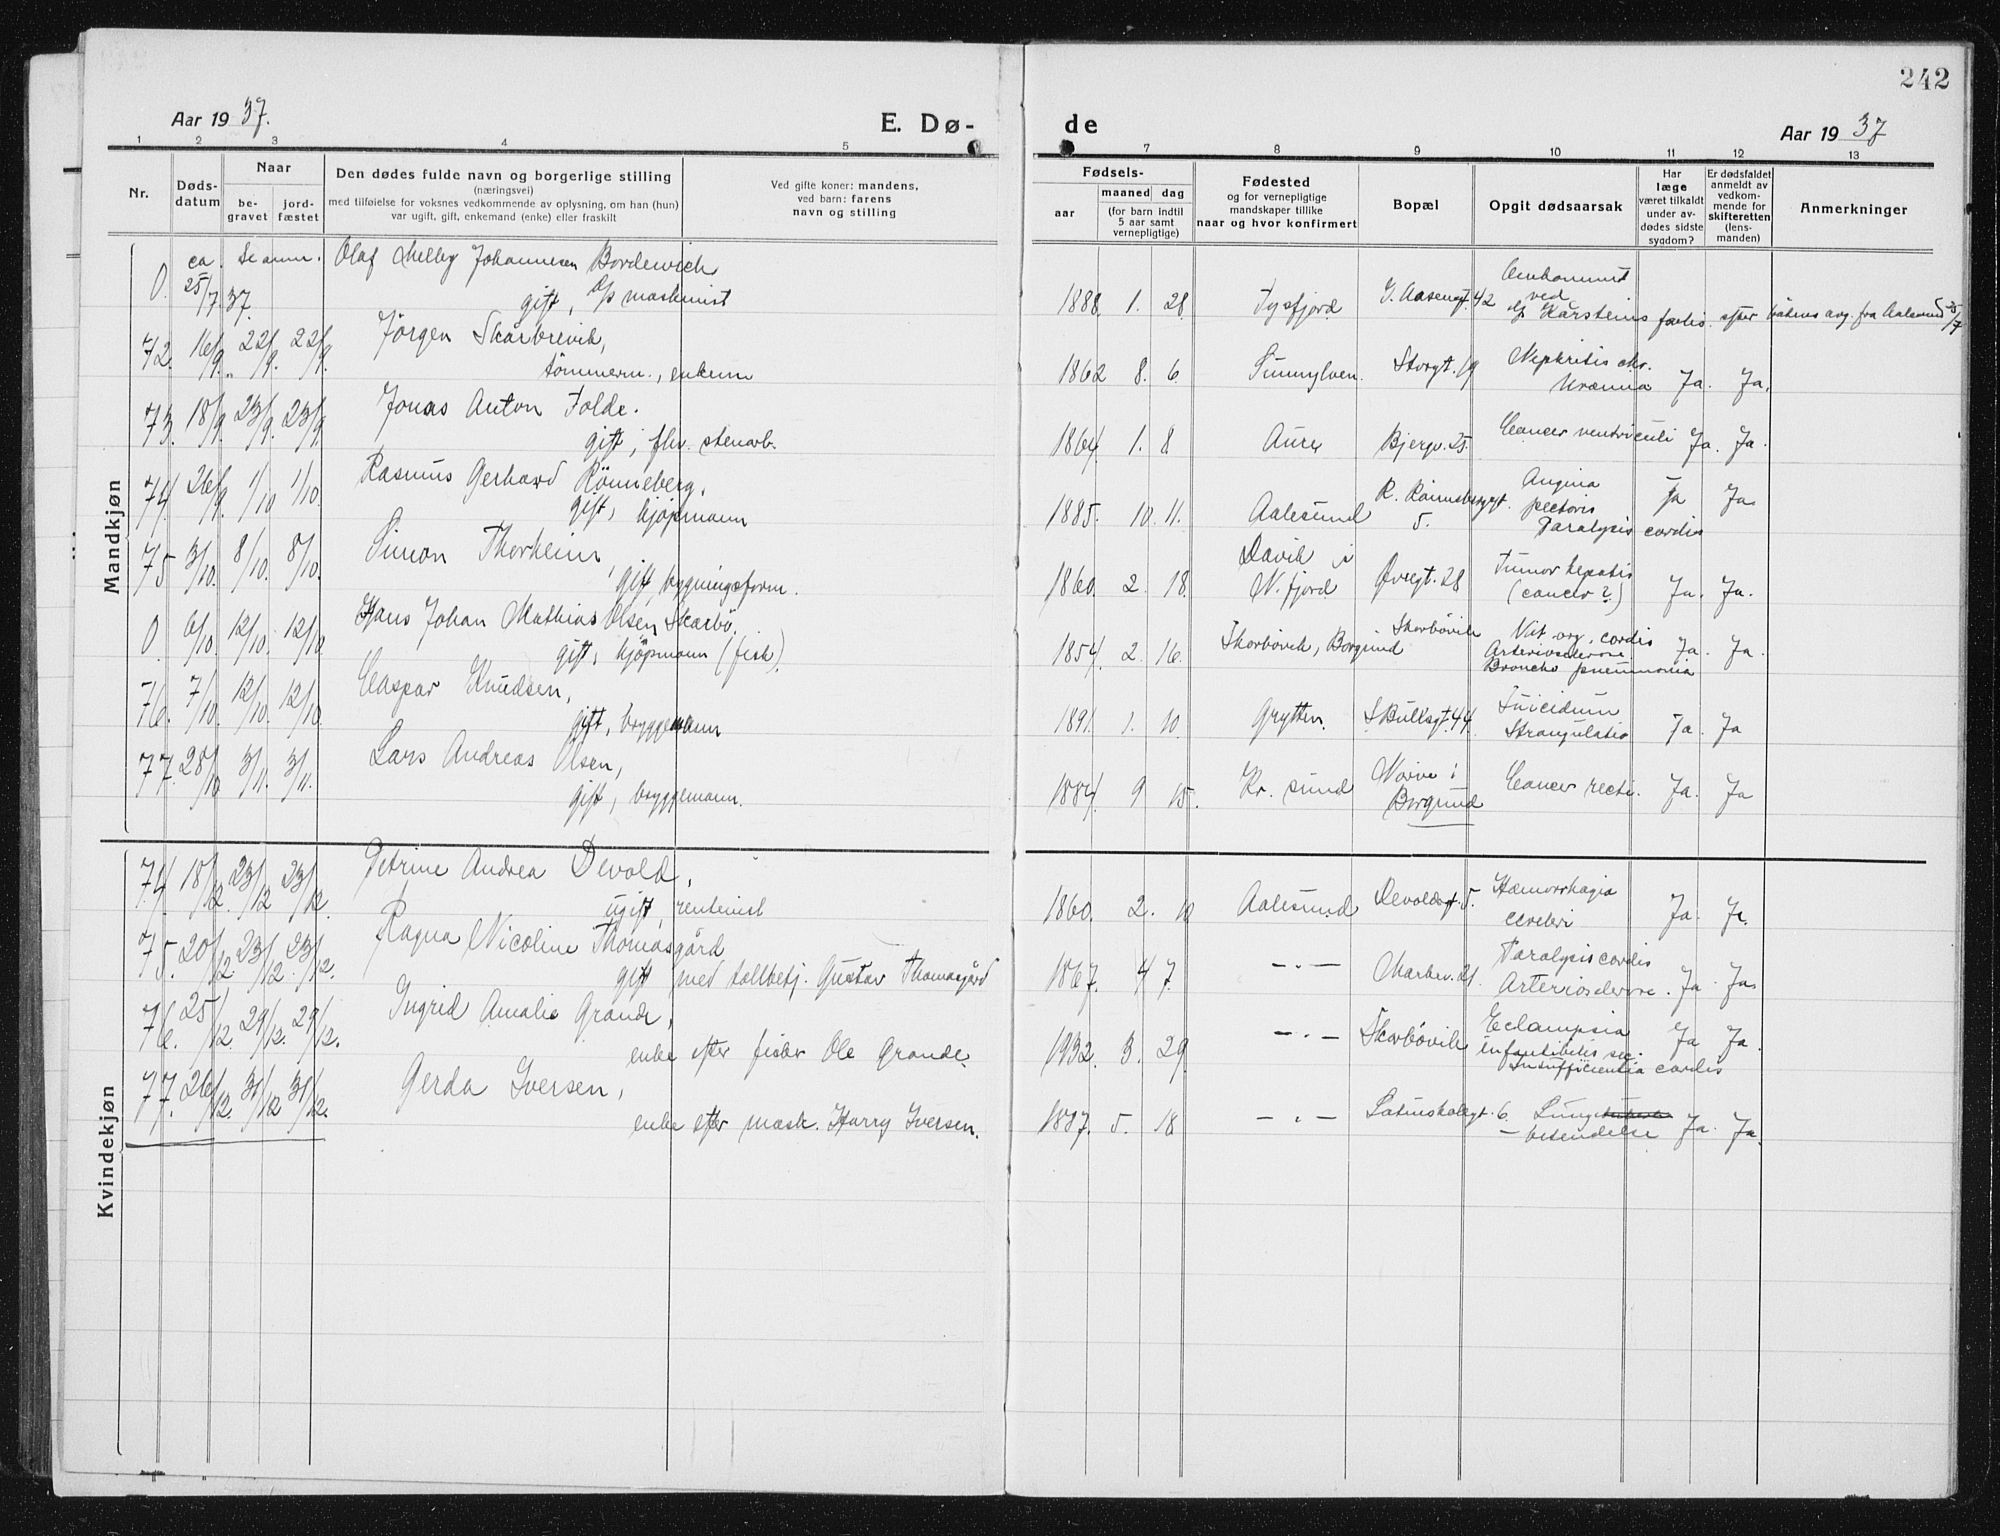 242
Aar 1937.
E. Dø-
de
Aar 1937
1 2 3 4 5 7 8 9 10 11 12 13
Nr.
Døds-
datum
Naar
be-
gravet
jord-
fæstet
Den dødes fulde navn og borgerlige stilling
(næringsvei)
med tilføielse for voksnes vedkommende av oplysning, om han (hun)
var ugift, gift, enkemand (enke) eller fraskilt
Ved gifte koner: mandens,
ved barn: farens
navn og stilling
Fødsels-
aar
maaned
dag
(for barn indtil
5 aar samt
vernepligtige)
Fødested
og for vernepligtige
mandskaper tillike
naar og hvor konfirmert
Bopæl
Opgit dødsaarsak
Har
læge
været tilkaldt
under av-
dødes sidste
sygdom?
Er dødsfaldet
anmeldt av
vedkom-
mende for
skifteretten
(lens-
manden)
Anmerkninger
Mandkjøn
0. ca. 25/7.37. Se anm. Olaf Melby Johannesen Bordewich
gift, maskinist
1888. 1. 28. Tysfjord I. Aasengt. 42 Omkommet
ved
Karsteins forlis. efter båtens avg. fra Aalesund 25/7
72. 16/9. 22/9. 22/9. Jörgen Skårbrevik,
tömmerm., enkem
1862 8. 6. Sunnylven. Storgt. 19 Nephritis chr.
Uræmia Ja. Ja.
73. 18/9. 23/9. 23/9. Jonas Anton Folde.
gift, fhv. stenarb.
1864. 1. 8 Aure Bjergv. 25. Cancer ventriculi Ja. Ja.
74. 26/9. 1/10 1/10. Rasmus Gerhard Rönneberg.
gift, kjöpmann
1885. 10. 11. Aalesund R. Rönnebergsgt. 5. Angina
pectoris
Paralysis cordis Ja Ja
75 3/10. 8/10. 8/10. Simon Thorheim,
gift, bygningsform.
1860. 2. 18. Davik i
N. fjord Øvregt. 28 Tumor hepatis
(cancer?) Ja. Ja.
0. 6/10 12/10. 12/10. Hans Johan Mathias Olsen Skarbö.
gift, kjöpmann (fisk).
1854. 2. 16. Skorbövik, Borgund Skorbövik Vit. org. cordis
Arteriosclerose.
Broncho pneumonia Ja. Ja.
76. 7/10. 12/10. 12/10. Caspar Knudsen,
gift, bryggemann
1891. 1. 10. Grytten. S. Bullsgt. 44. Suicidum
Strangulatio Ja. Ja
77. 28/10 3/11. 3/11. Lars Andreas Olsen,
gift, bryggemann.
1884. 9 15. Kr. sund Nörve i
Borgund Cancer recti. Ja. Ja
Kvindekjøn
74. 18/12. 23/12 23/12. Petrine Andrea Devold,
ugift, rentenist
1860. 2. 10 Aalesund Devoldsgt. 5. Hæmorrhagia
cerebri Ja. Ja.
75. 20/12 23/12. 23/12. Ragna Nicoline Thomasgård
gift med tollbetj. Gustav Thomasgård
1867. 4 7. — " — Marken. 21. Paralysis cordis
Arteriosclerose. Ja. Ja
76. 25/12. 29/12. 29/12. Ingrid Amalie Grande,
enke efter fisker Ole Grande.
1932. 3. 29. — " — Skorbövik Eclampsia
infantibilis sec.
Insufficientia cordis Ja Ja.
77. 26/12. 31/12 31/12. Gerda Iversen,
enke efter mask. Harry Iversen.
1887. 5. 18 — " — Latinskolegt. 6. Lunge
— betendelse Ja. Ja.